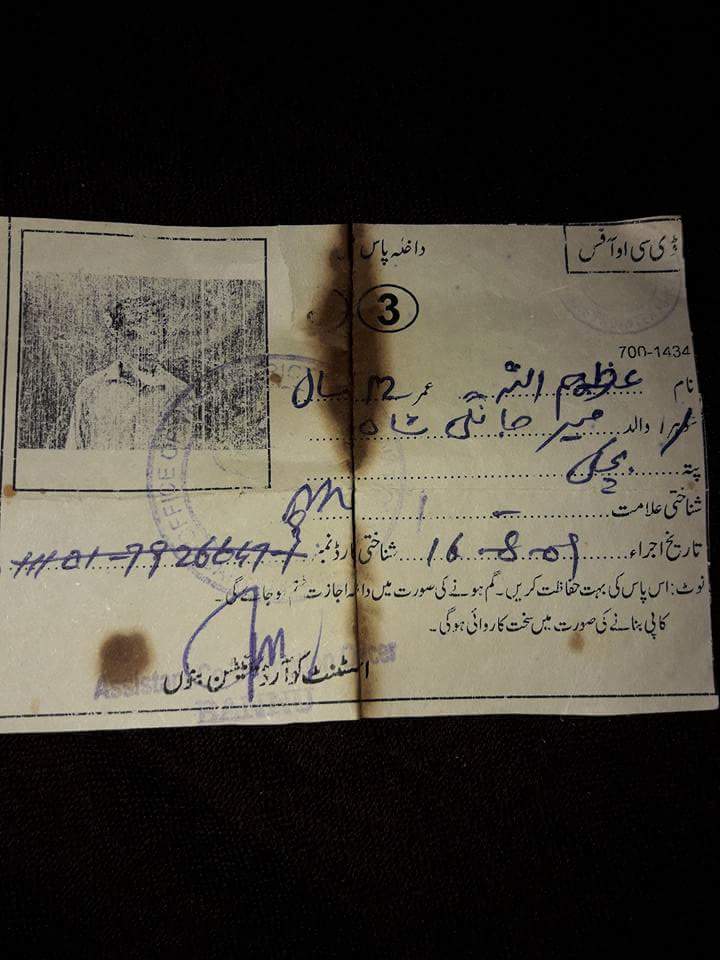 ڈی سی او آفس
داخلہ پاس
3
700-1434
نام عظیم اللہ عمر 12 سال
ہمرا والد میر جانگی شاہ
پتہ
شناختی علامت
تاریخ اجراء 16-8-09 شناختی کارڈ نمبر
نوٹ: اس پاس کی بہت حفاظت کریں۔ گم ہونے کی صورت میں داخلہ اجازت ختم ہو جائے گی۔
کاپی بنانے کی صورت میں سخت کاروائی ہوگی۔
اسٹنٹ کوآرڈینیشن بنوں
BANNU
OFFICE OF